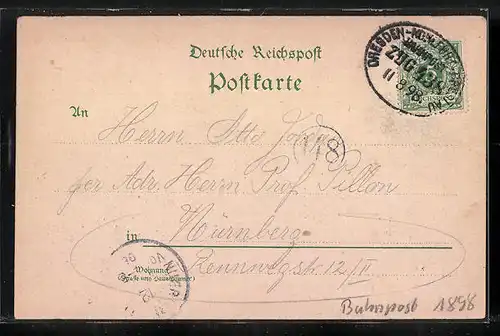 Deutsche Reichspost
Postkarte
DRESDEN-
BAHNPOST
ZUG 131
11 8 98
An
Herrn Otto
118
per Adr. Herrn Prof. Pillon
in Nürnberg
Wohnung
(Straße und Hausnummer)
Rennwegstr. 12/II
Bahnpost 1898